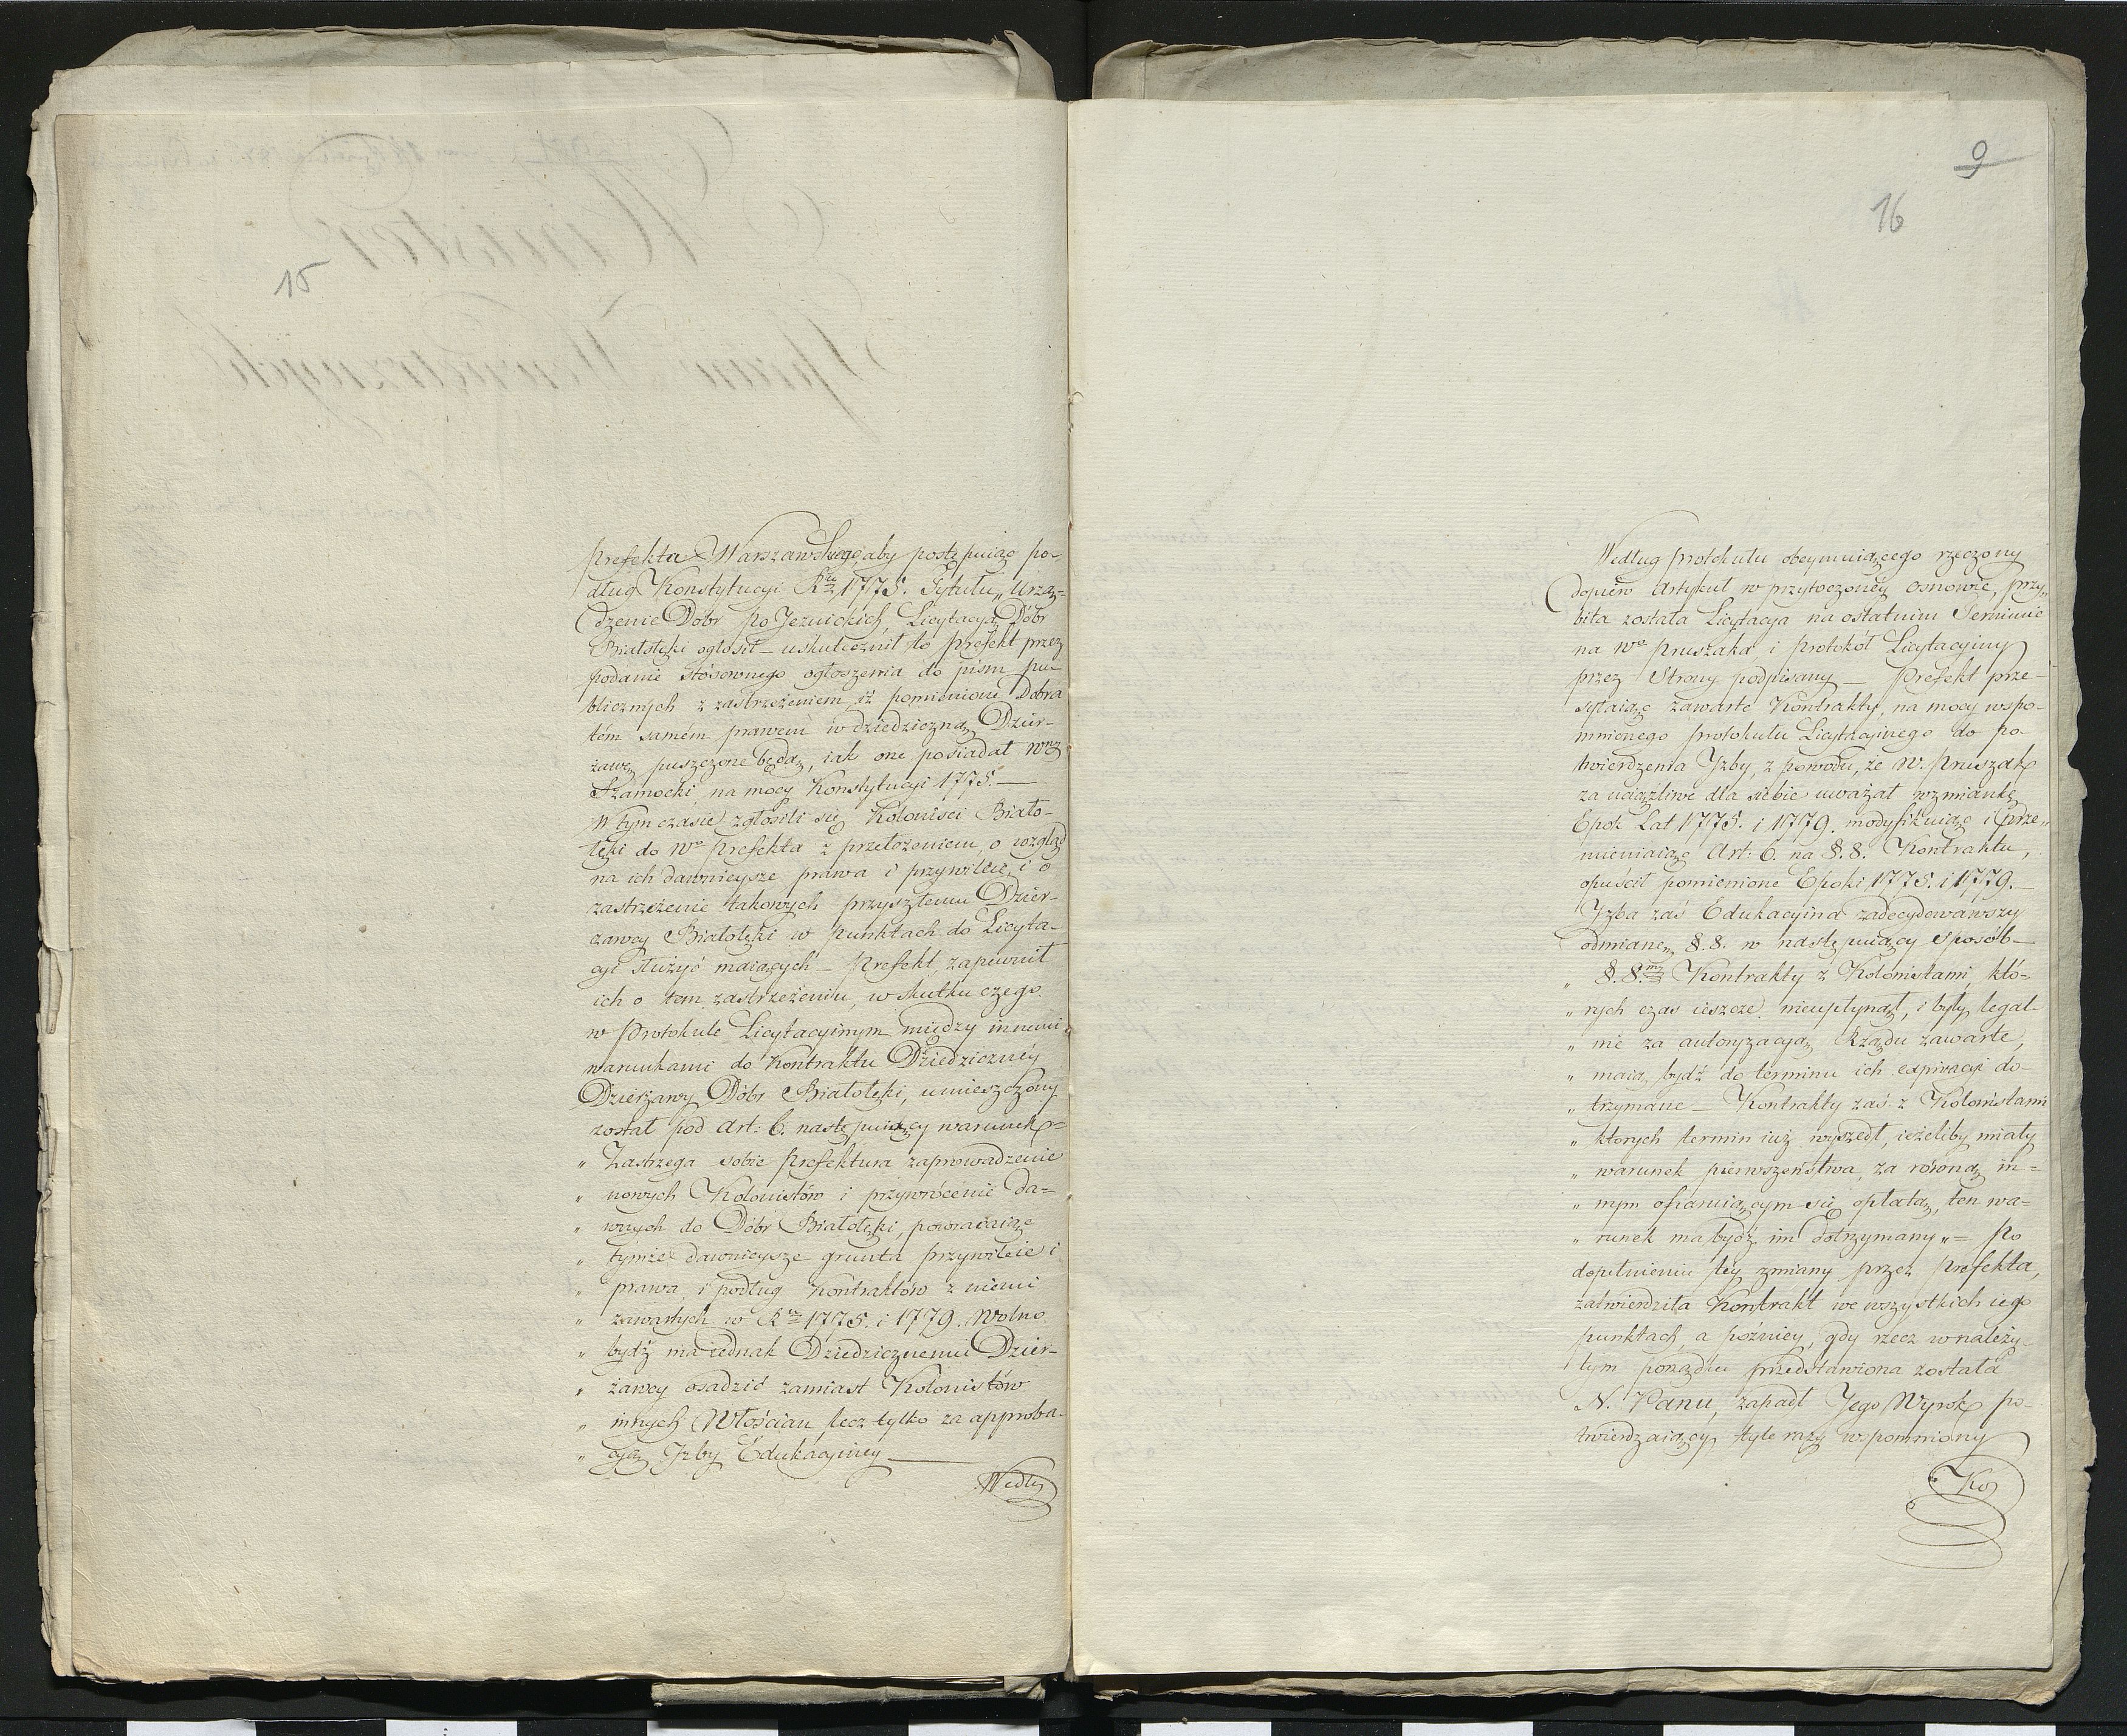 15
Prefekta Warszawskiego, aby postępuiąc po-
dług Konstytucyi Rku 1775. Tytułu „Urzą-
dzenie Dóbr po Jezuickich, Licytacyą Dóbr
Białołęki ogłosił – uskutecznił to Prefekt przez
podanie stósownego ogłoszenia do pism pu-
blicznych z zastrzeżeniem, iż pomienione Dobra
tém samém prawem w dziedziczną Dzier-
żawę puszczone będą, iak one posiadał
Szamocki, na mocy Konstytucyi 1775. –
W tym czasie zgłosili się Koloniści Biało-
łęki do Wo Prefekta z przełożeniem, o wzgląd
na ich dawnieysze prawa i przywileie, i o
zastrzeżenie takowych przyszłemu Dzier-
żawcy Białołęki w punktach do Licyta-
cyi służyć maiących – Prefekt zapewnił
ich o tem zastrzeżeniu, w skutku czego
w Protokule Licytacyinym między innemi
warunkami do Kontraktu Dziedziczney
Dzierżawy Dóbr Białołęki, umieszczony
został pod Art: 6. następuiący warunek =
„ Zastrzega sobie Prefektura zaprowadzenie
„ nowych Kolonistów i przywrócenie da=
„ wnych do Dóbr Białołęki, powracaiąc
„ tymże dawnieysze grunta przywileie i
„ prawa, i podług Kontraktów z niemi
„ zawartych w Rku 1775. i 1779. Wolno
„ bydź ma iednak Dziedzicznemu Dzier-
„ żawcy osadzić zamiast Kolonistów
„ innych Włościan, lecz tylko za approba-
„ cyą Izby Edukacyiney –
Wedłu
9
16
Według Protokułu obeymuiącego rzeczony
dopiero Artykuł w przytoczoney osnowie, przy„
bita została Licytacya na ostatnim Terminie
na Wo Pruszaka i Protokół Licytacyiny
przez Strony podpisany – Prefekt prze-
syłaiąc zawarte Kontrakty, na mocy wspo-
mnionego Protokułu Licytacyinego do po-
twierdzenia Izby, z powodu, że W. Pruszak
za uciążliwe dla siebie uważał wzmiankę
Epok Lat 1775. i 1779. modyfikuiąc i prze„
mieniaiąc Art: 6. na §. 8. Kontraktu,
opuścił pomienione Epoki 1775. i 1779. –
Izba zaś Edukacyina zadecydowawszy
odmianę §. 8. w następuiący sposób –
„ §. 8.my Kontrakty z Kolonistami, któ-
„ rych czas ieszcze nieupłynął, i były legal-
„ nie za autoryzacyą Rządu zawarte,
„ maią bydź do terminu ich expiracyi do-
„ trzymane – Kontrakty zaś z Kolonistami
„ których termin iuż wyszedł, ieżeliby miały
„ warunek pierwszeństwa, za równą in=
„ nym ofiaruiącym się opłatą, ten wa-
„ runek ma bydź im dotrzymany „= Po
dopełnieniu tey zmiany przez Prefekta,
zatwierdziła Kontrakt we wszystkich iego
punktach, a poźniey, gdy rzecz w należy-
tym porządku przedstawiona została
N. Panu, zapadł Jego Wyrok po-
twierdzaiący tyle razy wspomniony
Ko